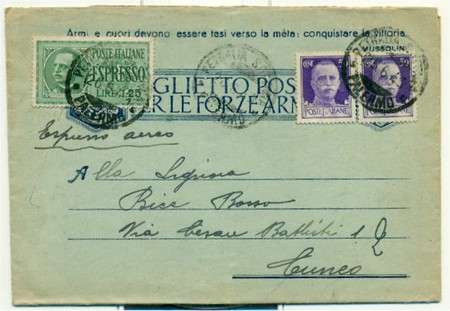 Armi e cuori devono essere tesi verso la mèta: conquistare la vittoria
MUSSOLINI
POSTE ITALIANE
ESPRESSO
LIRE 1,25
PALERMO
PETRALIA
BIGLIETTO POS
PER LE FORZE ARM
50 50
POSTE ITALIANE
PALERMO
Espresso aereo
Alla Signora
Bice Bosso
Via Cesare Battisti 12
Cuneo